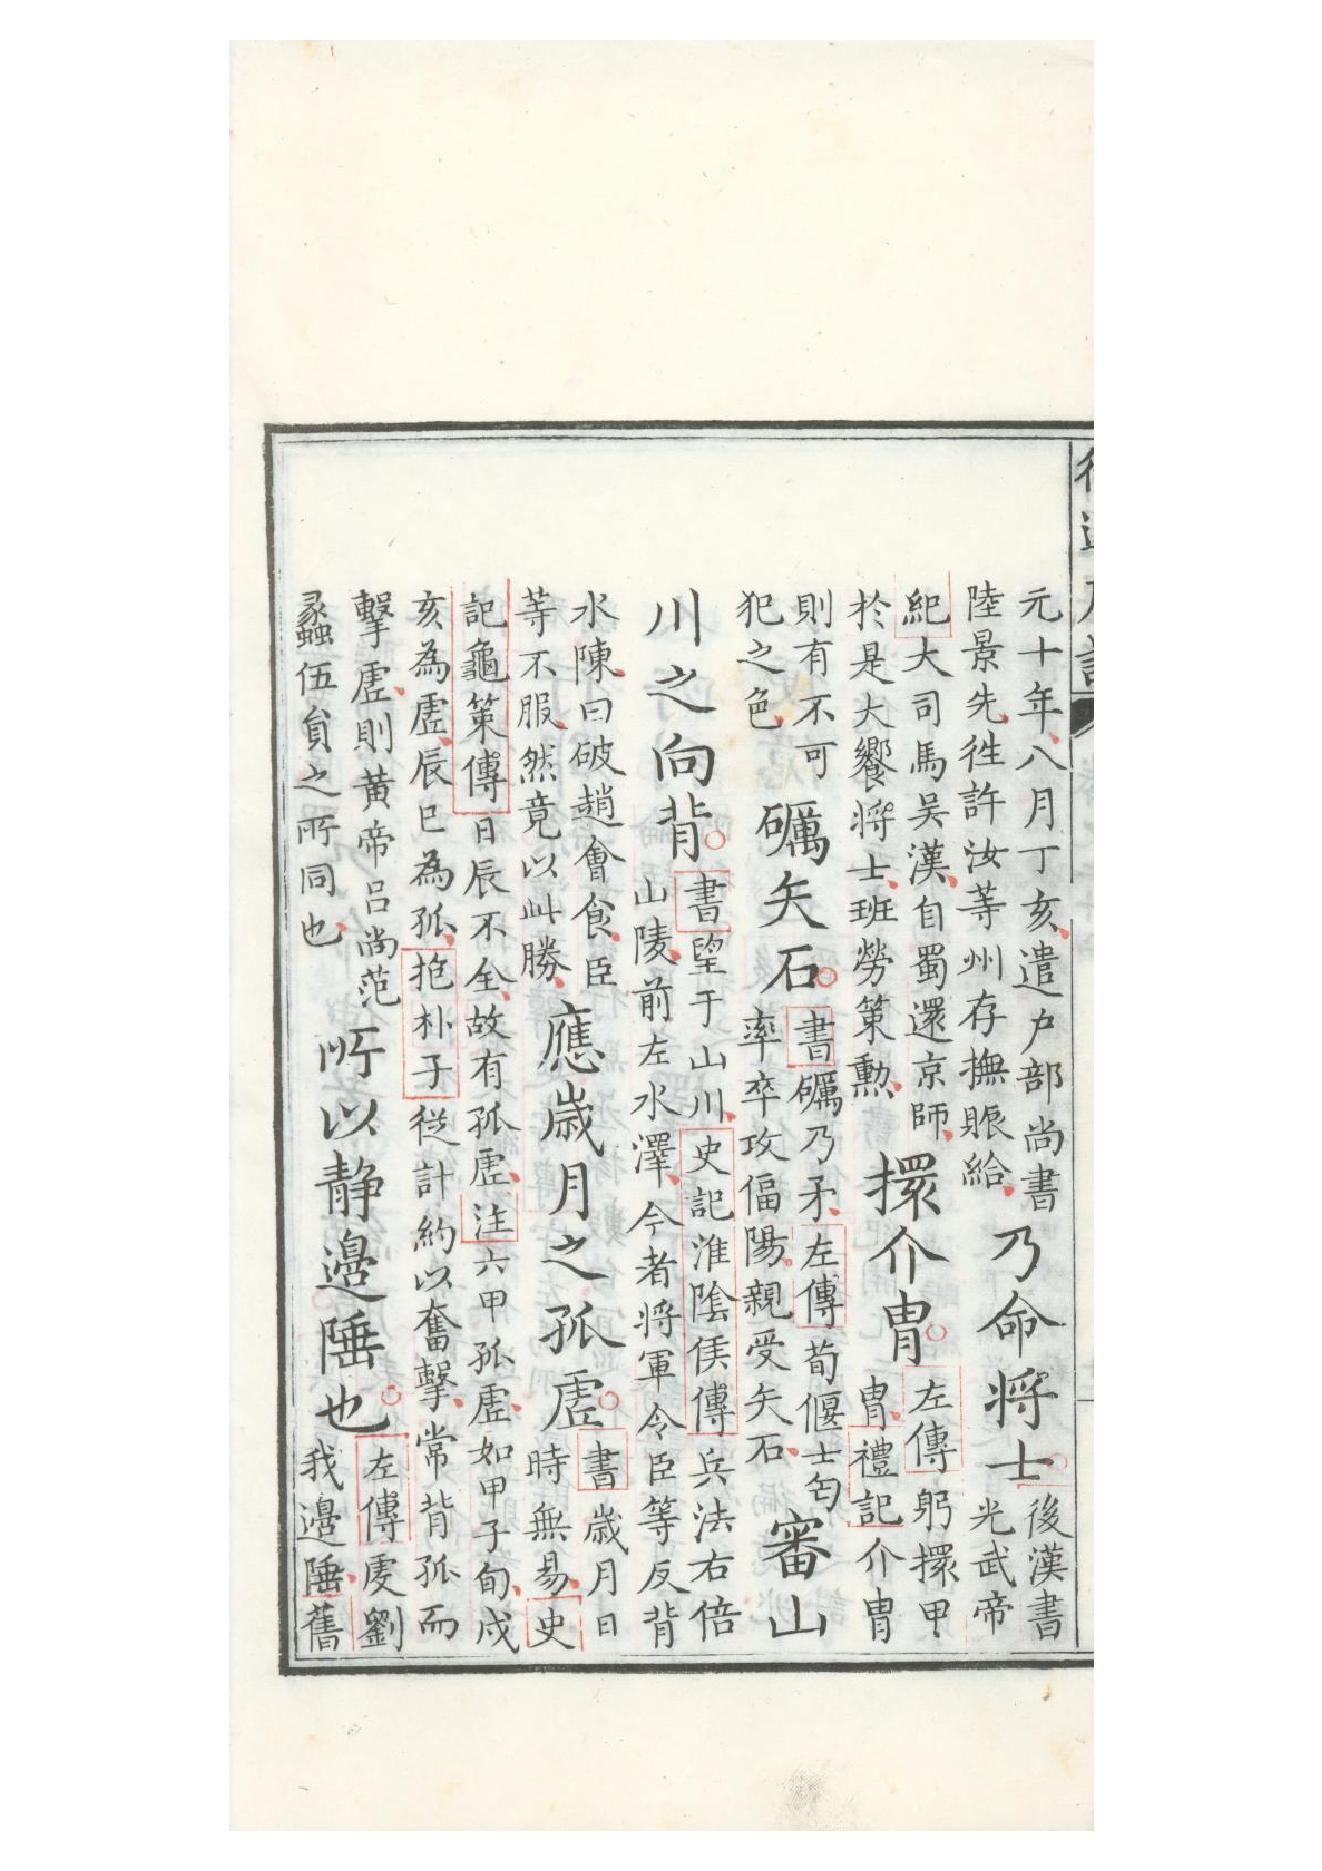 元十年八月丁亥遣户部尚書
陸景先徃許汝等州存撫賑給
乃命将士
後漢書
光武帝
紀大司馬吴漢自蜀還京師
於是大饗将士班勞策勲
擐介胄
左傳躬擐甲
胄禮記介胄
則有不可
犯之色
礪矢石
書礪乃矛左傳荀偃士匄
率卒攻偪陽親受矢石
審山
川之向背
書望于山川史記淮陰侯傳兵法右倍
山陵前左水澤今者将軍令臣等反背
水陳曰破趙會食臣
等不服然竟以此勝
應歲月之孤虛
書歲月日
時無易史
記龜策傳日辰不全故有孤虛注六甲孤虛如甲子旬戍
亥為虛辰巳為孤抱朴子從計約以奮擊常背孤而
擊虛則黃帝吕尚范
蠡伍員之所同也
所以静邊陲也
左傳虔劉
我邊陲舊